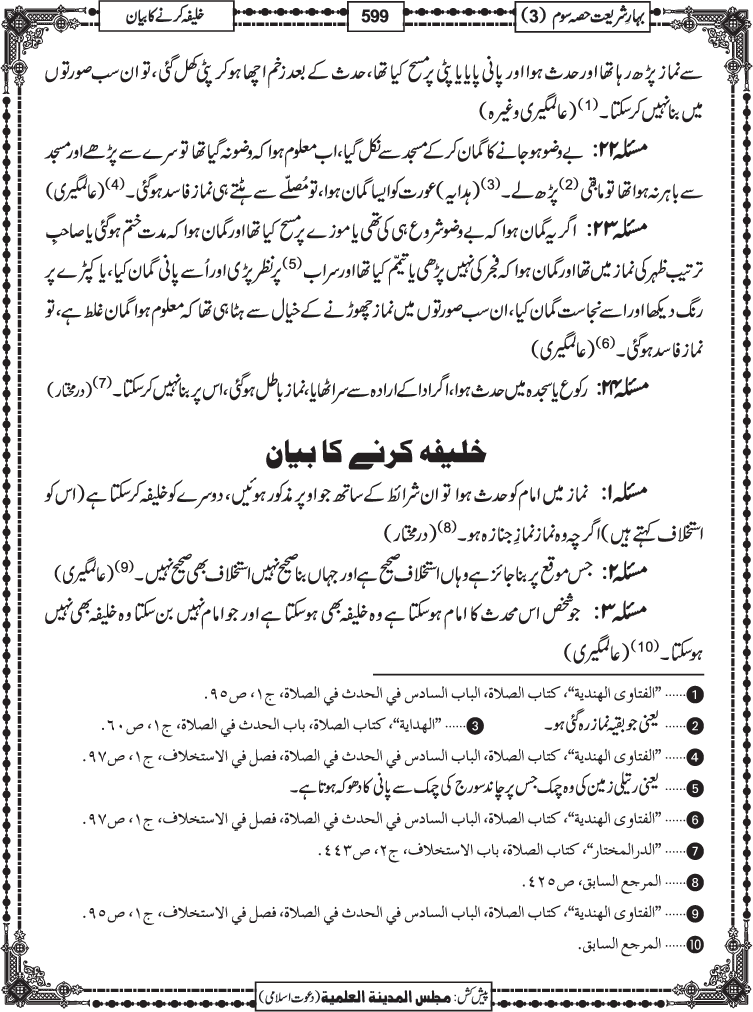 بہارِ شریعت حصہ سوم (3)
599
خلیفہ کرنے کا بیان
سے نماز پڑھ رہا تھا اور حدث ہوا اور پانی پایا یا پٹی پر مسح کیا تھا، حدث کے بعد زخم اچھا ہو کر پٹی کھل گئی، تو ان سب صورتوں
میں بنا نہیں کرسکتا۔ (1) (عالمگیری وغیرہ)
مسئلہ ۲۲: بے وضو ہو جانے کا گمان کر کے مسجد سے نکل گیا، اب معلوم ہوا کہ وضو نہ گیا تھا تو سرے سے پڑھے اور مسجد
سے باہر نہ ہوا تھا تو مابقی (2) پڑھ لے۔ (3) (ہدایہ) عورت کو ایسا گمان ہوا، تو مُصلّے سے ہٹتے ہی نماز فاسد ہوگئی۔ (4) (عالمگیری)
مسئلہ ۲۳: اگر یہ گمان ہوا کہ بے وضو شروع ہی کی تھی یا موزے پر مسح کیا تھا اور گمان ہوا کہ مدت ختم ہوگئی یا صاحبِ
ترتیب ظہر کی نماز میں تھا اور گمان ہوا کہ فجر کی نہیں پڑھی یا تیمّم کیا تھا اور سراب (5) پر نظر پڑی اور اُسے پانی گمان کیا، یا کپڑے پر
رنگ دیکھا اور اسے نجاست گمان کیا، ان سب صورتوں میں نماز چھوڑنے کے خیال سے ہٹا ہی تھا کہ معلوم ہوا گمان غلط ہے، تو
نماز فاسد ہوگئی۔ (6) (عالمگیری)
مسئلہ ۲۴: رکوع یا سجدہ میں حدث ہوا، اگر ادا کے ارادہ سے سر اٹھایا، نماز باطل ہوگئی، اس پر بنا نہیں کرسکتا۔ (7) (درمختار)
خلیفہ کرنے کا بیان
مسئلہ ۱: نماز میں امام کو حدث ہوا تو ان شرائط کے ساتھ جو اوپر مذکور ہوئیں، دوسرے کو خلیفہ کرسکتا ہے (اس کو
استخلاف کہتے ہیں) اگرچہ وہ نماز نمازِ جنازہ ہو۔ (8) (درمختار)
مسئلہ ۲: جس موقع پر بنا جائز ہے وہاں استخلاف صحیح ہے اور جہاں بنا صحیح نہیں استخلاف بھی صحیح نہیں۔ (9) (عالمگیری)
مسئلہ ۳: جو شخص اس محدث کا امام ہوسکتا ہے وہ خلیفہ بھی ہوسکتا ہے اور جو امام نہیں بن سکتا وہ خلیفہ بھی نہیں
ہوسکتا۔ (10) (عالمگیری)
1 ...... ”الفتاوى الهندية“، كتاب الصلاة، الباب السادس في الحدث في الصلاة، ج١، ص٩٥.
2 ...... یعنی جو بقیہ نماز رہ گئی ہو۔ 3 ...... ”الهداية“، كتاب الصلاة، باب الحدث في الصلاة، ج١، ص٦٠.
4 ...... ”الفتاوى الهندية“، كتاب الصلاة، الباب السادس في الحدث في الصلاة، فصل في الاستخلاف، ج١، ص٩٧.
5 ...... یعنی ریتلی زمین کی وہ چمک جس پر چاند سورج کی چمک سے پانی کا دھوکہ ہوتا ہے۔
6 ...... ”الفتاوى الهندية“، كتاب الصلاة، الباب السادس في الحدث في الصلاة، فصل في الاستخلاف، ج١، ص٩٧.
7 ...... ”الدرالمختار“، كتاب الصلاة، باب الاستخلاف، ج٢، ص٤٤٣.
8 ...... المرجع السابق، ص٤٢٥.
9 ...... ”الفتاوى الهندية“، كتاب الصلاة، الباب السادس في الحدث في الصلاة، فصل في الاستخلاف، ج١، ص٩٥.
10 ...... المرجع السابق.
پیش کش: مجلس المدينة العلمية (دعوت اسلامی)